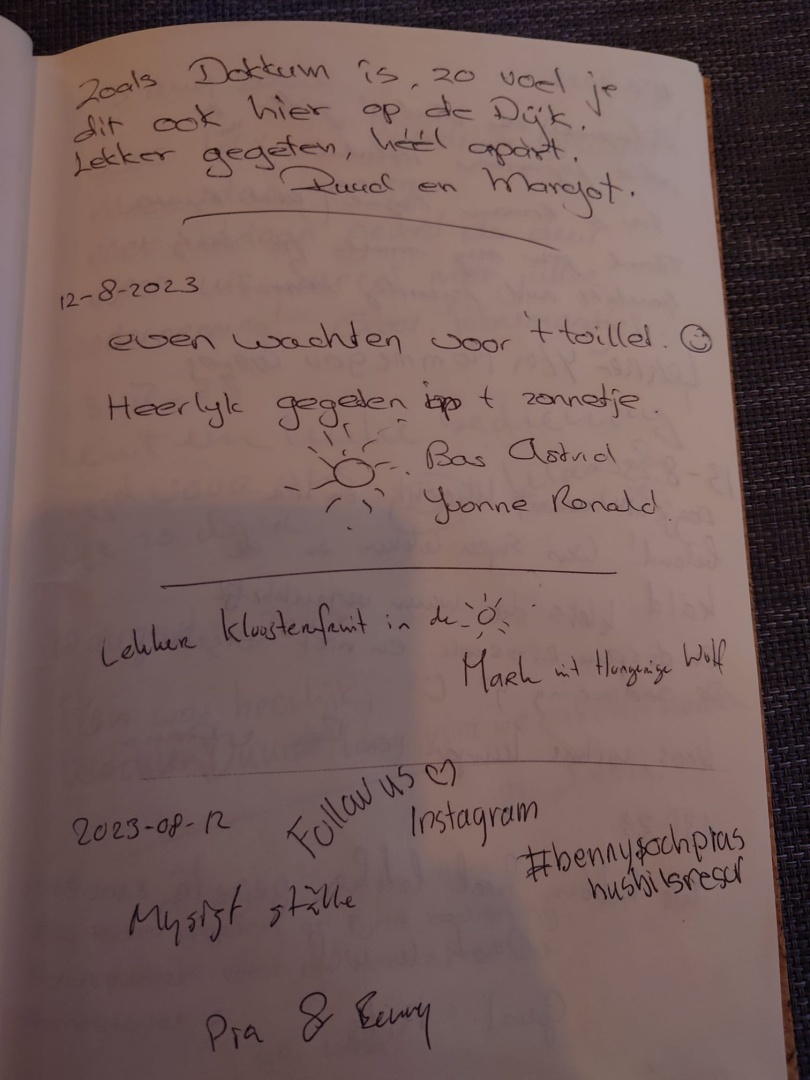 Zoals Dokkum is, zo voel je
dit ook hier op de Dijk.
Lekker gegeten, héél apart.
Ruud en Margot.
12-8-2023
even wachten voor 't toillet. ☺
Heerlyk gegeten op t zonnetje.
Bas Astrid
Yvonne Ronald.
Lekker Kloosterfruit in de
Mark uit Hongerige Wolf
Follow us ♡
2023-08-12
Instagram
#bennysochpias
husbilsresor
Mysigt ställe
Pia & Benny